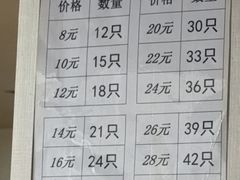 价格 数量 价格 数量
8元 12只 20元 30只
10元 15只 22元 33只
12元 18只 24元 36只
14元 21只 26元 39只
16元 24只 28元 42只